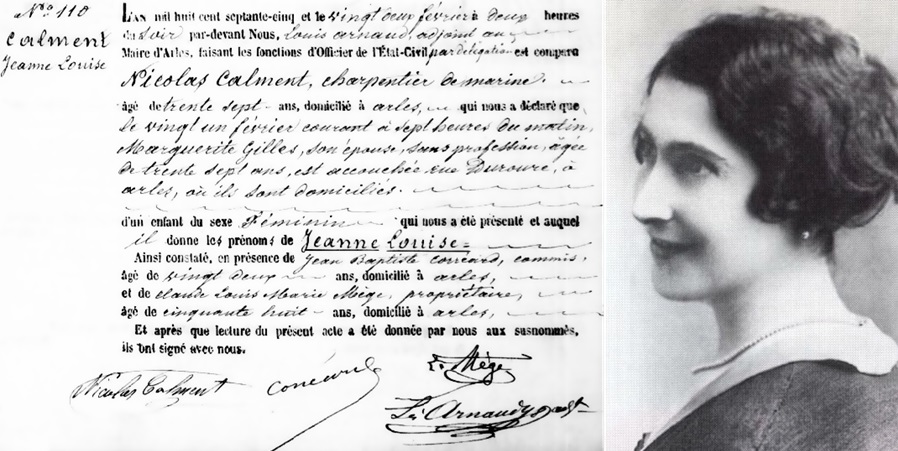 N° 110
Calment
Jeanne Louise
L'AN mil huit cent septante-cinq et le vingt deux février à deux heures
du soir par-devant Nous, Louis arnaud, adjoint au
Maire d'Arles, faisant les fonctions d'Officier de l'État-Civil par délégation est comparu
Nicolas Calment, charpentier de marine
âgé de trente sept ans, domicilié à arles, qui nous a déclaré que
le vingt un février courant à sept heures du matin,
Marguerite Gilles, son épouse, sans profession, agée
de trente sept ans, est accouchée rue Duroure, à
arles, où ils sont domiciliés.
d'un enfant du sexe Féminin qui nous a été présenté et auquel
il donne les prénoms de Jeanne Louise
Ainsi constaté, en présence de Jean Baptiste corréard, commis,
âgé de vingt deux ans, domicilié à arles,
et de claude Louis Marie Mège, propriétaire,
âgé de cinquante huit ans, domicilié à arles,
Et après que lecture du présent acte a été donnée par nous aux susnommés,
ils ont signé avec nous.
Nicolas Calment corréard Ls Mège
Ls Arnaud